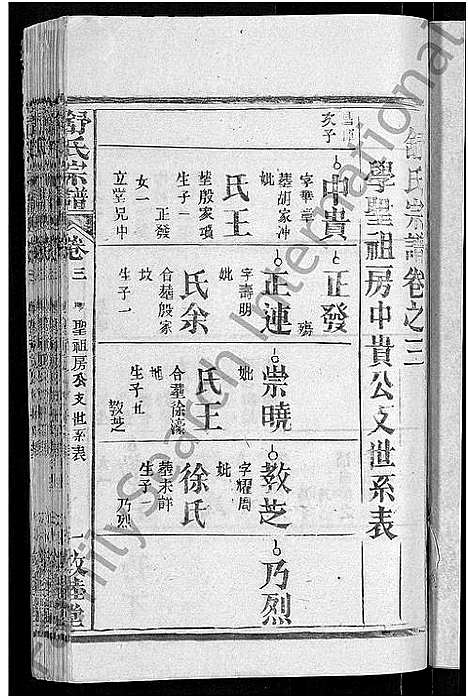 舒氏宗譜卷之三
學聖祖房中貴公支世系表
次子
中貴
字華堂
葬胡家冲
妣
王氏
葬殷家項
生子一
正發
女一
立堂兄中
正發
殤
正連
字壽明
妣
余氏
合葬殷家
坟
生子一
崇曉
妣
王氏
合葬徐濠
地
生子五
教芝
教芝
字耀周
妣
徐氏
葬未詳
生子一
乃烈
乃烈
舒氏宗譜
卷三
聖祖房公支世系表
一
敦睦堂
FamilySearch International